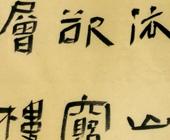 依山
欲窮
層樓